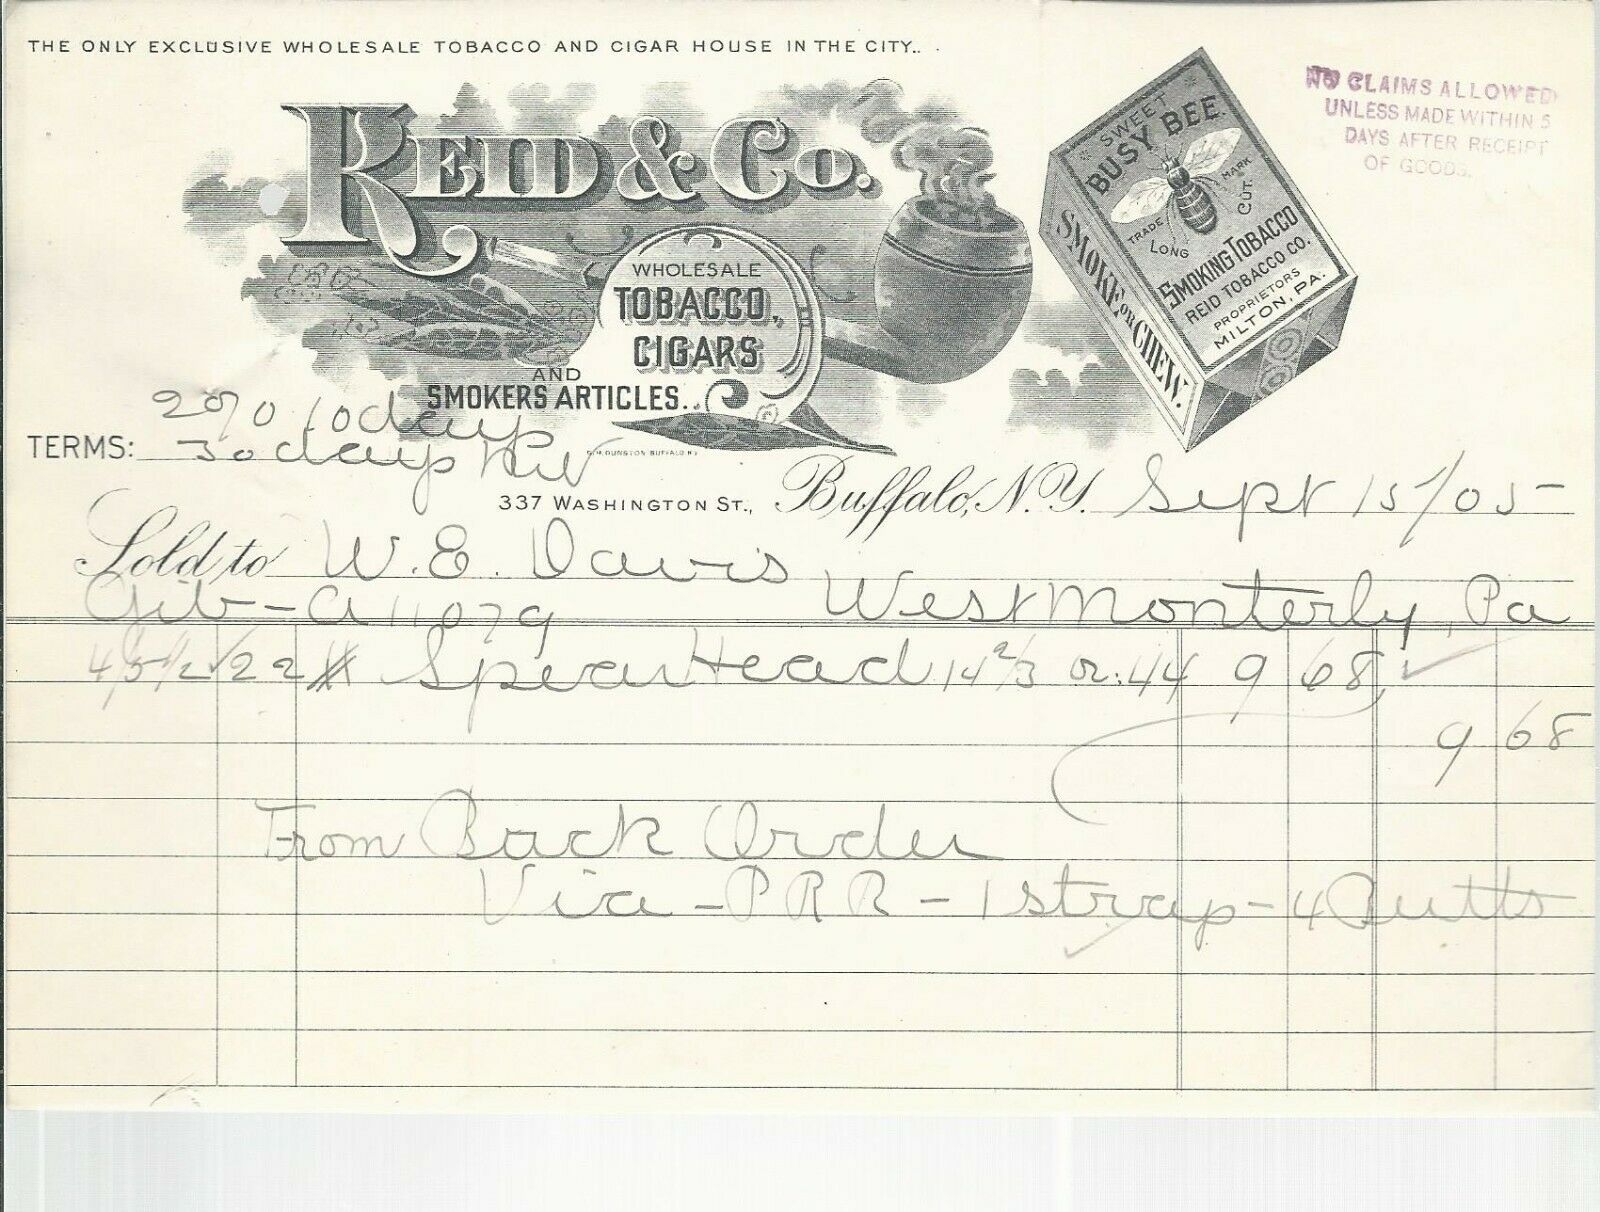 THE ONLY EXCLUSIVE WHOLESALE TOBACCO AND CIGAR HOUSE IN THE CITY..
NO CLAIMS ALLOWED
UNLESS MADE WITHIN 5
DAYS AFTER RECEIPT
OF GOODS.
REID & CO.
WHOLESALE
TOBACCO,
CIGARS
AND
SMOKERS ARTICLES..
SWEET
BUSY BEE.
TRADE MARK
LONG CUT.
SMOKING TOBACCO
REID TOBACCO CO.
PROPRIETORS
MILTON, PA.
SMOKE OR CHEW.
2% 10 days
TERMS: 30 days Net
337 WASHINGTON ST., Buffalo, N.Y. Sept 15/05
Sold to W. E. Davis
11079 West Monterly, Pa
22 # Spear Head 14 2/3 oz: 44 9 68
9 68
From Back Order
Via - P R R - 1 strap - 4 Butts